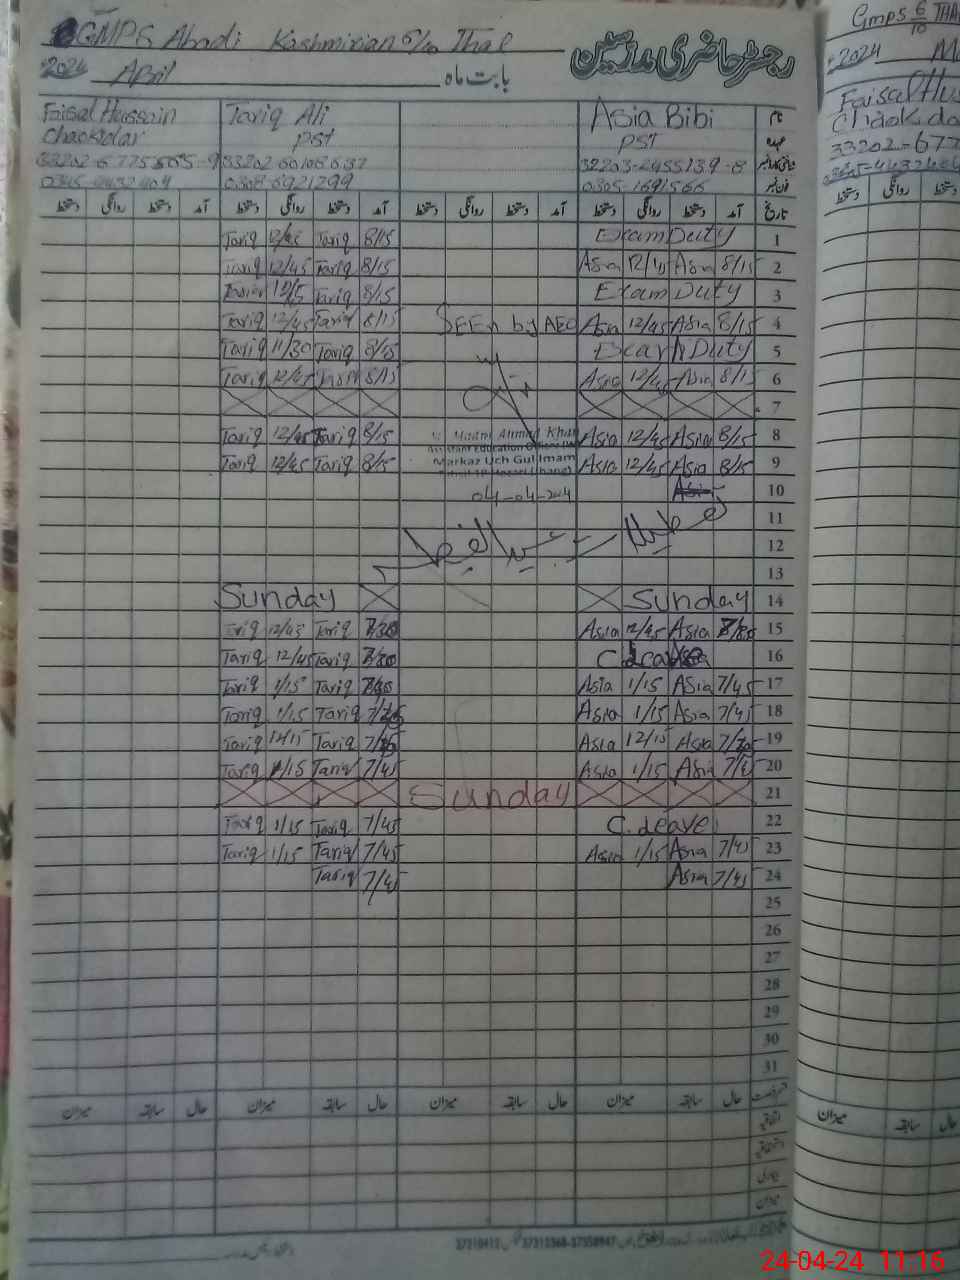 GMPS Abadi Kashmirian 6/10 Thal
رجسٹر حاضری ملازمین
2024 April بابت ماہ
Faisal Hussain Tariq Ali Asia Bibi نام
Chaokidar PST PST عہدہ
33202-6775565-9 32203-2455139-8
0308-6921299 0305-1691566
دستخط روانگی دستخط آمد دستخط روانگی دستخط آمد دستخط روانگی دستخط آمد دستخط روانگی دستخط آمد تاریخ
Tariq 12/45 Tariq 8/15 Exam Duty 1
Tariq 12/45 Tariq 8/15 Asia 12/45 Asia 8/15 2
Tariq 8/15 Exam Duty 3
Tariq 12/45 Tariq 8/15 SEEn by AEO Asia 12/45 Asia 8/15 4
Tariq 11/30 Tariq 8/15 Exam Duty 5
Tariq 12/45 Tariq 8/15 Asia 12/45 Asia 8/15 6
7
Tariq 12/45 Tariq 8/15 Ahmad Khan Asia 12/45 Asia 8/15 8
Assistant Education Officer
Tariq 12/45 Tariq 8/15 Markaz Uch Gul Imam Asia 12/45 Asia 8/15 9
04-04-2024 10
تعطیلات عید الفطر 11
12
13
Sunday Sunday 14
Tariq 12/45 Tariq 7/30 Asia 12/45 Asia 15
Tariq 12/45 Tariq 7/30 C. Leave 16
Tariq 1/15 Tariq Asia 1/15 Asia 7/45 17
Tariq 1/15 Tariq Asia 1/15 Asia 7/45 18
Tariq 12/15 Tariq Asia 12/15 Asia 19
Tariq 1/15 Tariq 7/45 Asia 1/15 Asia 7/45 20
Sunday 21
Tariq 1/15 Tariq 7/45 C. Leave 22
Tariq 1/15 Tariq 7/45 Asia 1/15 Asia 7/45 23
Tariq 7/45 Asia 7/45 24
25
26
27
28
29
30
31
میزان سابقہ حال میزان سابقہ حال میزان سابقہ حال میزان سابقہ حال
میزان
Gmps 6/10 THA
2024
Faisal Hus
Chaokida
33202-677
دستخط روانگی دستخط
میزان سابقہ حال
24-04-24 11:16